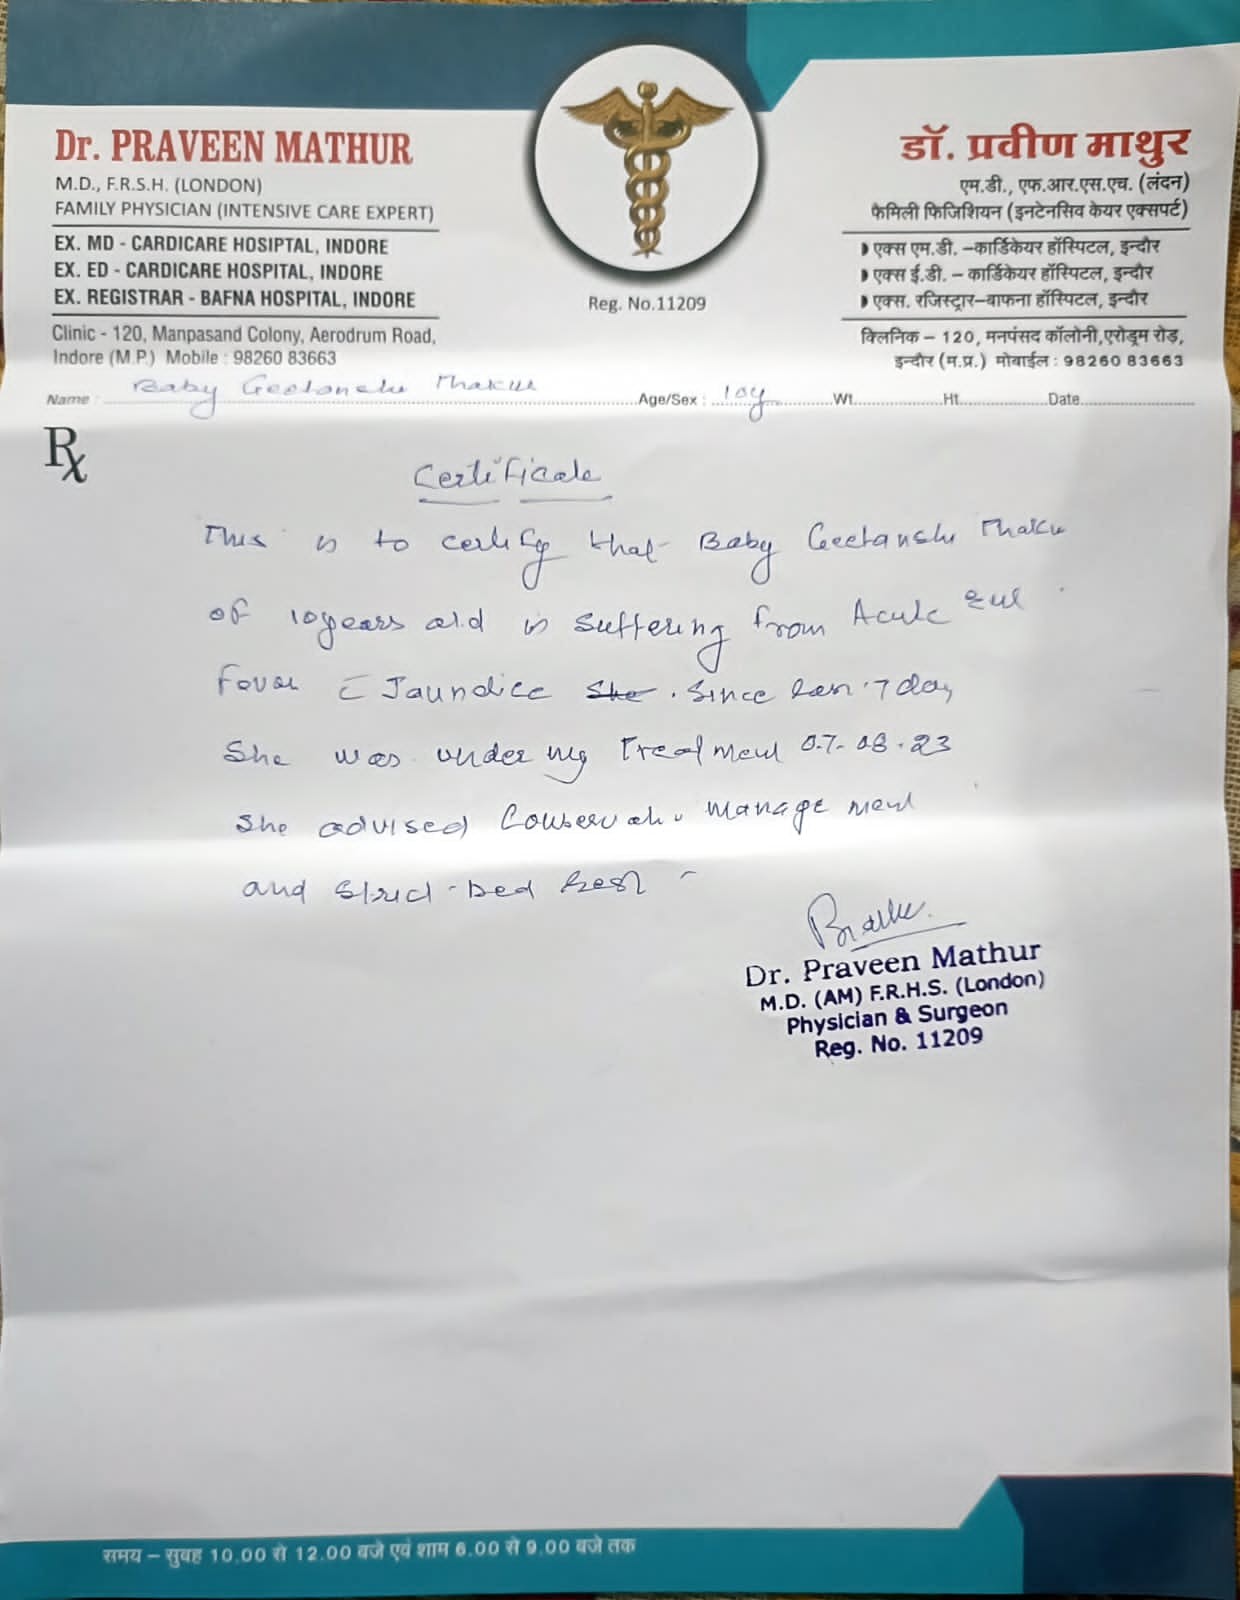 Dr. PRAVEEN MATHUR
M.D., F.R.S.H. (LONDON)
FAMILY PHYSICIAN (INTENSIVE CARE EXPERT)
EX. MD - CARDICARE HOSIPTAL, INDORE
EX. ED - CARDICARE HOSPITAL, INDORE
EX. REGISTRAR - BAFNA HOSPITAL, INDORE
Clinic - 120, Manpasand Colony, Aerodrum Road,
Indore (M.P.) Mobile : 98260 83663
Reg. No.11209
डॉ. प्रवीण माथुर
एम.डी., एफ.आर.एस.एच. (लंदन)
फैमिली फिजिशियन (इनटेनसिव केयर एक्सपर्ट)
एक्स एम.डी. –कार्डिकेयर हॉस्पिटल, इन्दौर
एक्स ई.डी. – कार्डिकेयर हॉस्पिटल, इन्दौर
एक्स. रजिस्ट्रार–बाफना हॉस्पिटल, इन्दौर
क्लिनिक – 120, मनपंसद कॉलोनी,एरोड्रम रोड़,
इन्दौर (म.प्र.) मोबाईल : 98260 83663
Name : Baby Geetanshu Thakur Age/Sex : 10y Wt. Ht. Date
Rx
Certificate
This is to certify that Baby Geetanshu Thakur
of 10years old is suffering from Acute
Fever c Jaundice She . Since 7 day
She was under my Treatment 07-08-23
She advised management
and Strict bed Rest
Dr. Praveen Mathur
M.D. (AM) F.R.H.S. (London)
Physician & Surgeon
Reg. No. 11209
समय – सुवह 10.00 से 12.00 बजे एवं शाम 6.00 से 9.00 बजे तक